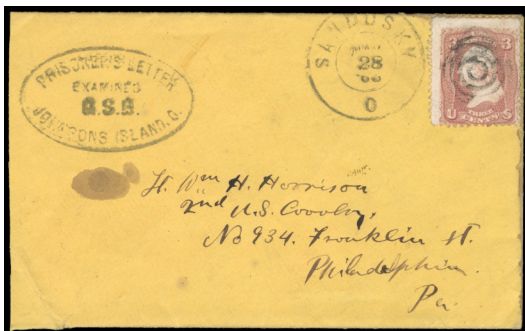 PRISONER'S LETTER
EXAMINED
G.S.B.
JOHNSONS ISLAND, O.
SANDUSKY
28
O
3 3
U THREE CENTS S
Lt. Wm H. Harrison
2nd U.S. Cavalry,
No 934. Franklin St.
Philadelphia.
Pa.